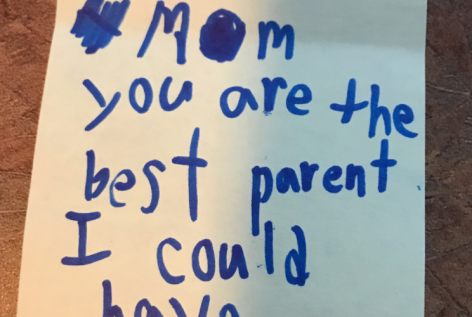 Mom
you are the
best parent
I could
have